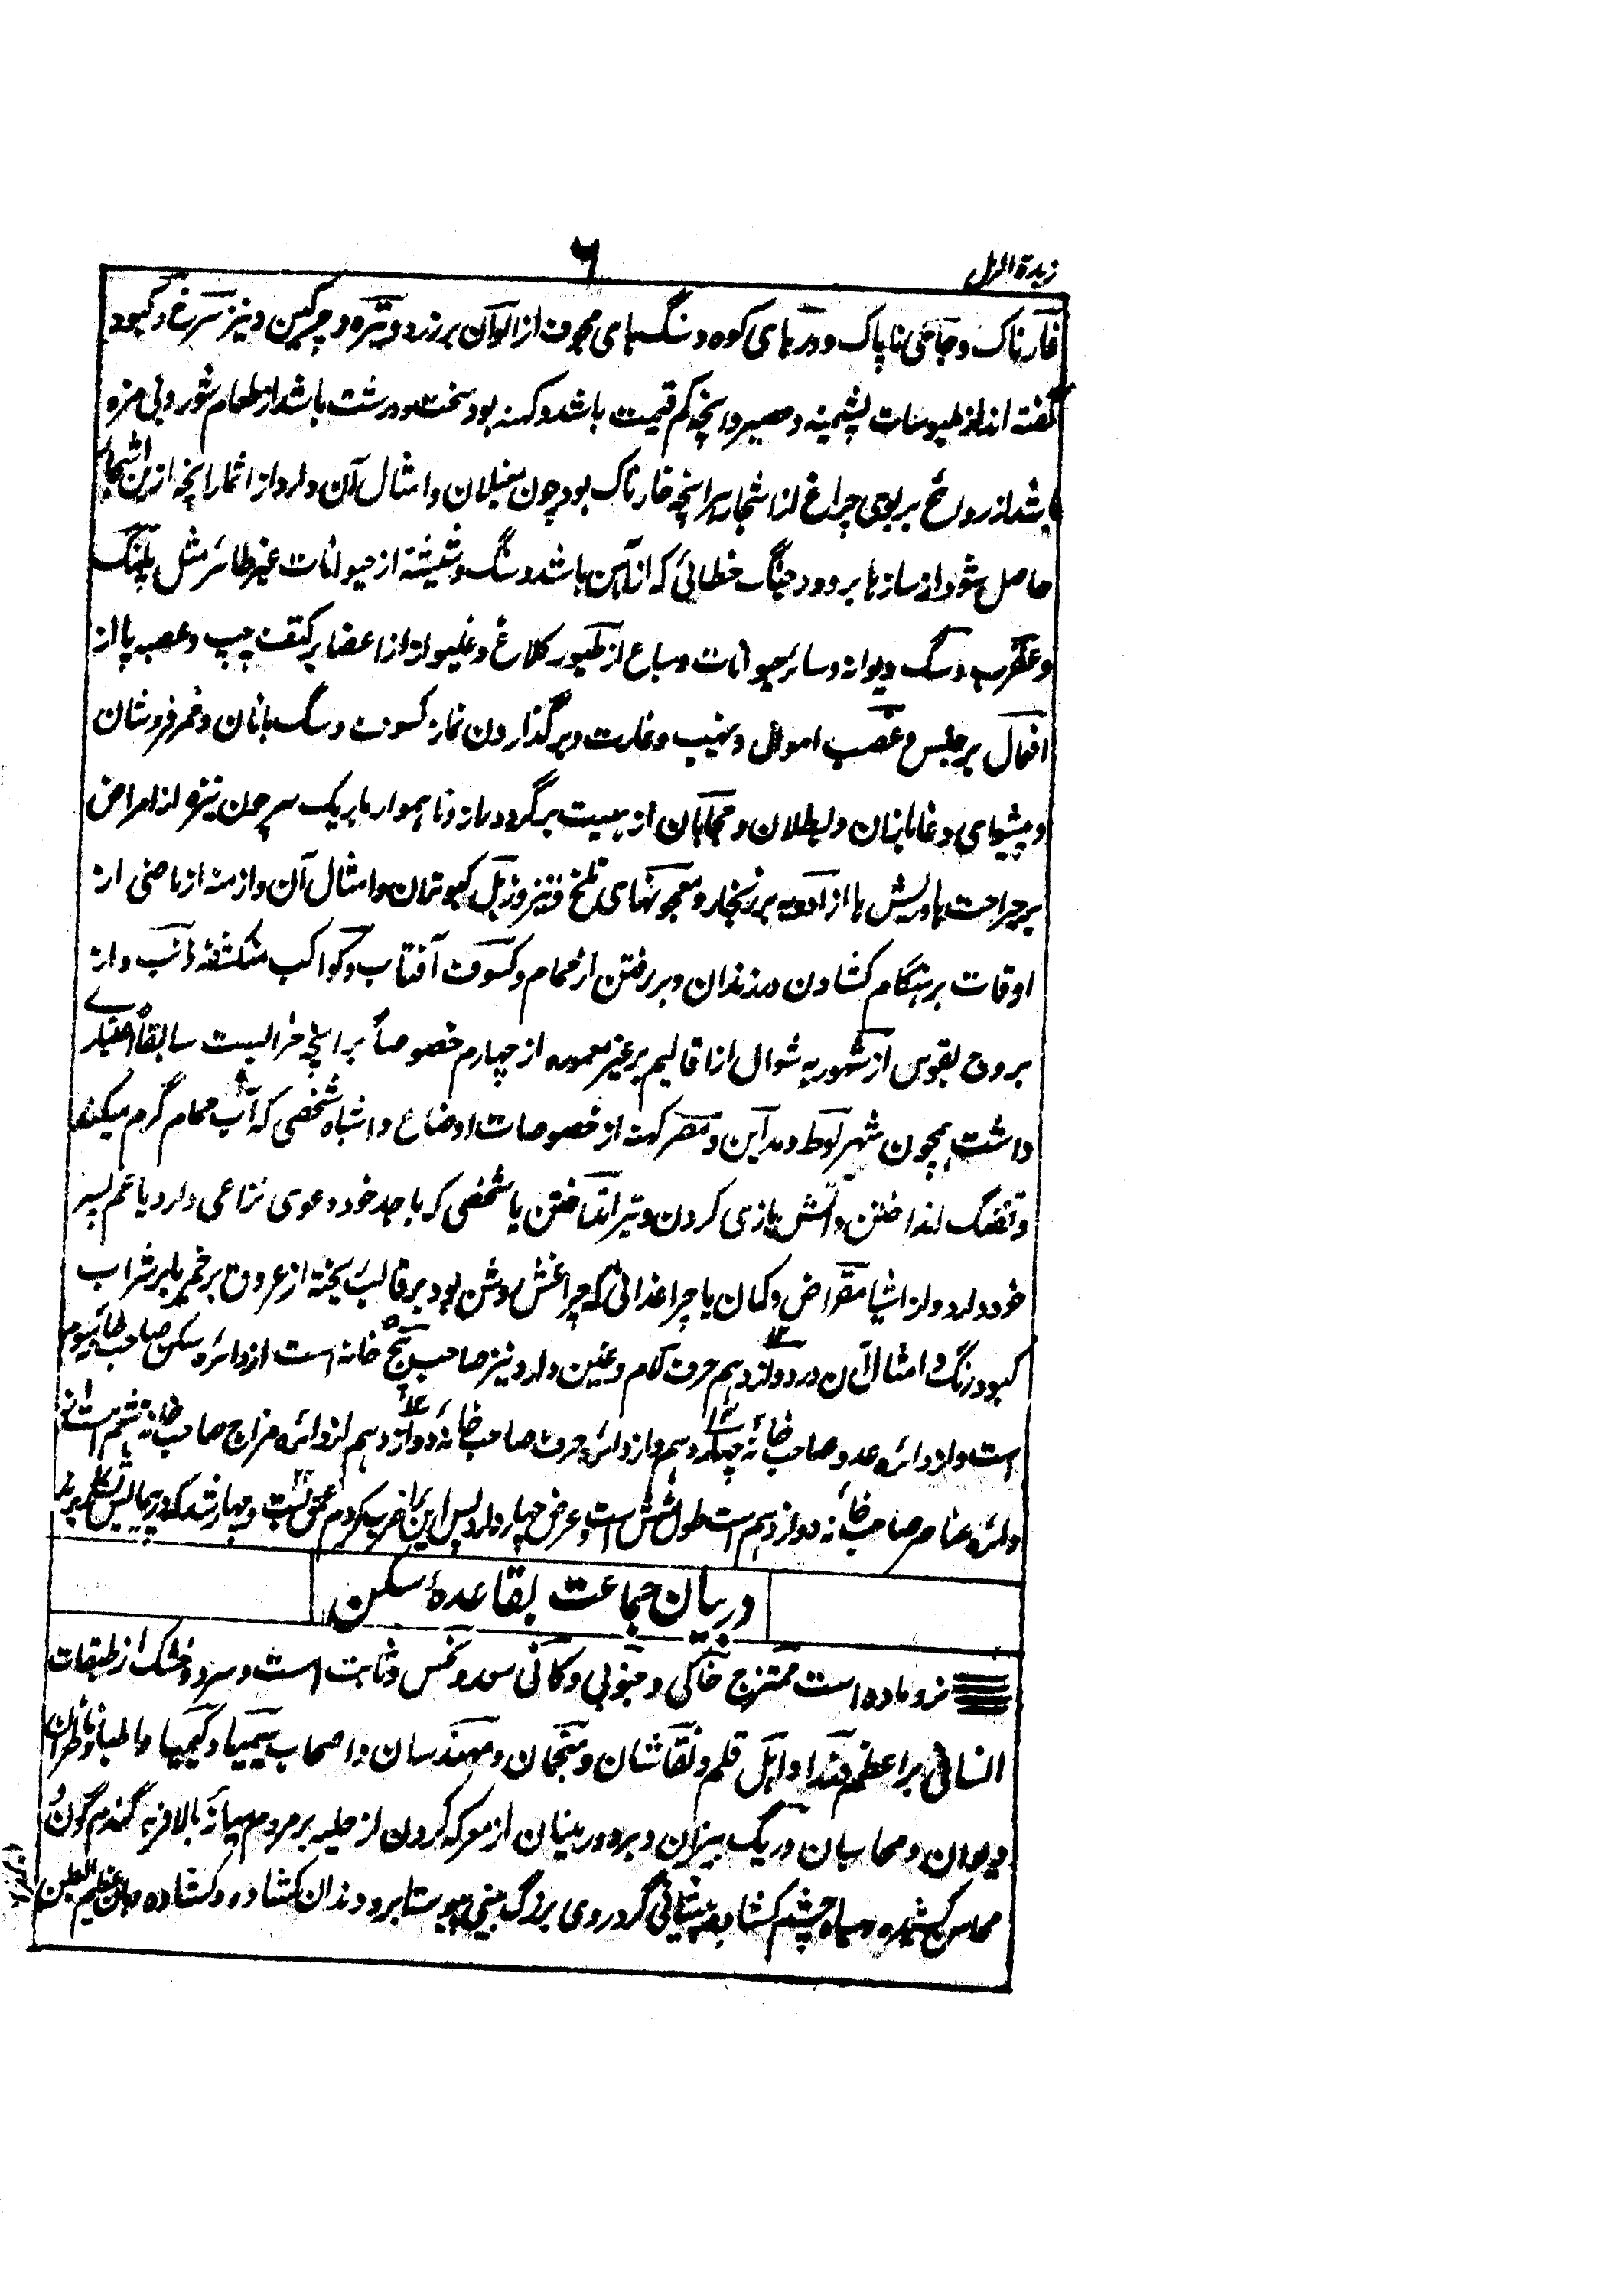 زبدة الرمل
۶
خارناک و جاهای ناپاک و در های کوه و سنگ های مجوف از الوان بر زرد و تیره و چرکین و نیز سرخ و کبود
گفته اند از ملبوسات پشمینه و حصیر و انچه کم قیمت باشد و کهنه بود سخت و درشت باشد از طعام شور و بی مزه
باشد از روائح بر بوی چراغ از اشجار هر انچه خارناک بود چون مغیلان و امثال آن دارد از اثمار انچه ازین اشجار
حاصل شود از سازها بر رود و چنگ خطائی که از آهن باشد و سنگ و شیشه از حیوانات غیر طائر مثل پلنگ
و عقرب و سگ دیوانه و سائر حیوانات و سباع از طیور کلاغ و غلیواز از اعضا بر کتف چپ و عصبه پا از
افعال بر حبس و غصب اموال و نهیب و غارت و بر گذاردن نماز کسوف و سگ بانان و خمر فروشان
و پیشهای دغابازان و بطلان و از هیبت بر گرد دراز و ناهموار باریک سر چون نیزه از امراض
بر جراحت ها و ریش ها از ادویه بر زنجار و معجونهای تلخ و تیز و زبل کبوتران و امثال آن و از منه از ماضی از
اوقات بر هنگام کشادن دندان و بر رفتن از حمام و کسوف آفتاب و کواکب منکشفه ذنب و از
بروج بقوس از شهور به شوال از اقالیم بر غیر معموره از چهارم خصوصاً بر انچه خرابیست سابقاً اعتبارے
داشت همچون شهر لوط و مداین و مصر کهنه از خصوصات اوضاع و اشباه شخصی که آب حمام گرم میکند
و تفنگ انداختن و آتش بازی کردن و تیر انداختن یا شخصی که با جد خود دعوی نزاعی دارد یا عم پسر
خود دارد و از اشیا مقراض و کمان یا چراغدانی که چراغش روشن بود بر قالب پخته از عروق بر خم یا بر شراب
کبود رنگ و امثال آن در دوازدهم حرف لام و غین دارد و نیز صاحب پنج خانه است از دائره سکن صاحب خانه سوم
است و از دائره عدد صاحب خانه چهاردهم و از دائره حرف صاحب خانه دوازدهم از دائره مزاج صاحب خانه ششم است از
دائره عناصر صاحب خانه دوازدهم است طول شش است و عرض چهار دارد پس این را ضرب کردم عمق بست و چهار شد که در
در بیان جماعت بقاعدهٔ سکن
نر و ماده است ممتزج خاکی و جنوبی و کانی سعد و نحس و ثابت است و سرد و خشک از طبقات
انسانی بر اعظم و اهل قلم و نقاشان و منجمان و مهندسان و اصحاب سیمیا و کیمیا و اطبا و ناظران
دیوان و محاسبان و ریگ بیزان و بر دوربینان از معرکه کردن از حلیه بر مردم میانه بالا فربه گندم گون
محاسن کشیده و سیاه چشم کشاده پیشانی گرد روی بزرگ بینی پیوسته ابرو دندان کشاده و کشاده دهان عظیم البطن